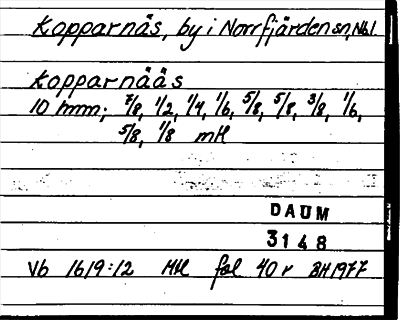 Kopparnäs, by i Norrfjärden sn, Nb.l
Kopparnääs
10 hmm; 7/8, 1/2, 1/4, 1/6, 5/8, 5/8, 3/8, 1/6,
5/8, 1/8 mtl
DAUM
3148
Vb 1619:12 Mtl fol 40 r BH1977